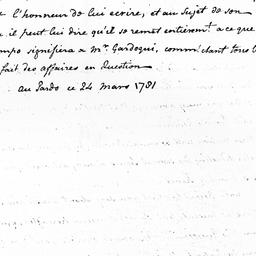 l'honneur de lui ecrire, et au sujet de son
il peut lui dire qu'il se remet entierem.t a ce que
mpo signifiera a Mr. Gardoqui, comm'étant tous l
fait des affaires en Question
au Pardo ce 24 Mars 1781